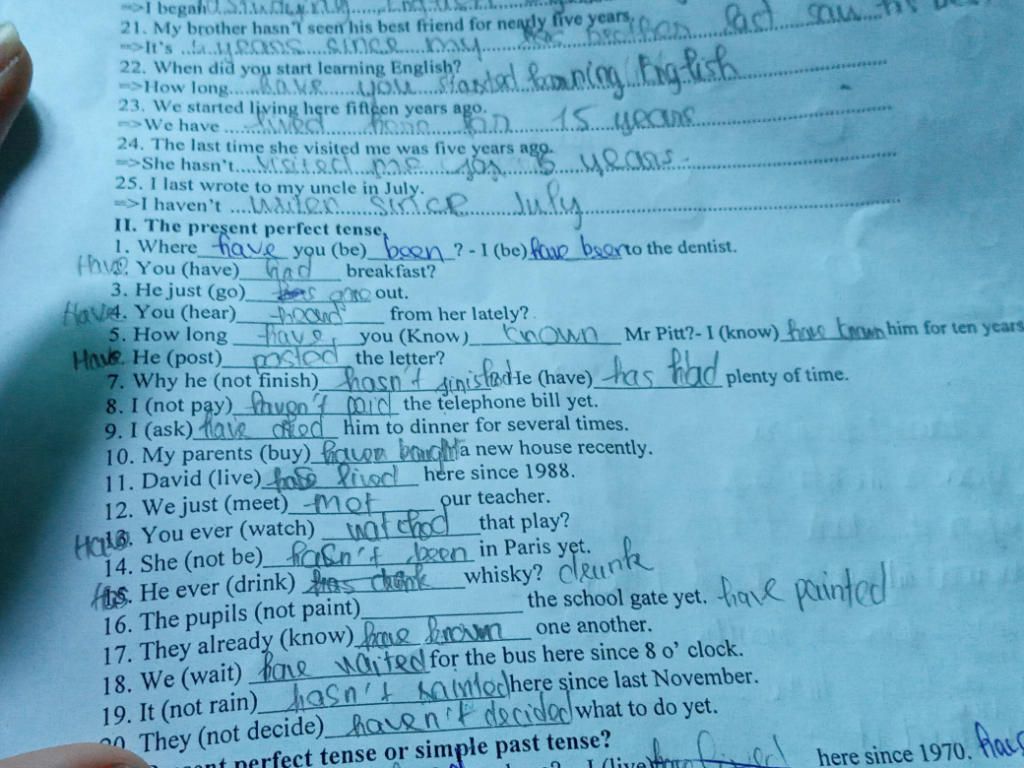 =>I began studying
21. My brother hasn't seen his best friend for nearly five years.
=>It's 5 years since my brother last saw his
22. When did you start learning English?
=>How long have you started learning English
23. We started living here fifteen years ago.
=>We have lived here for 15 years
24. The last time she visited me was five years ago.
=>She hasn't visited me for 5 years.
25. I last wrote to my uncle in July.
=>I haven't writen since July
II. The present perfect tense.
1. Where have you (be) been ? - I (be) have been to the dentist.
Have You (have) had breakfast?
3. He just (go) has gone out.
Have 4. You (hear) heard from her lately?
5. How long have you (Know) known Mr Pitt?- I (know) have known him for ten years
Have He (post) posted the letter?
7. Why he (not finish) hasn't finished He (have) has had plenty of time.
8. I (not pay) haven't paid the telephone bill yet.
9. I (ask) have him to dinner for several times.
10. My parents (buy) bought a new house recently.
11. David (live) lived here since 1988.
12. We just (meet) met our teacher.
Have 13. You ever (watch) watched that play?
14. She (not be) hasn't been in Paris yet.
Has 15. He ever (drink) has drink whisky? drunk
16. The pupils (not paint) the school gate yet. have painted
17. They already (know) have known one another.
18. We (wait) have waited for the bus here since 8 o' clock.
19. It (not rain) hasn't here since last November.
20 They (not decide) haven't decided what to do yet.
perfect tense or simple past tense?
I (live) lived here since 1970.